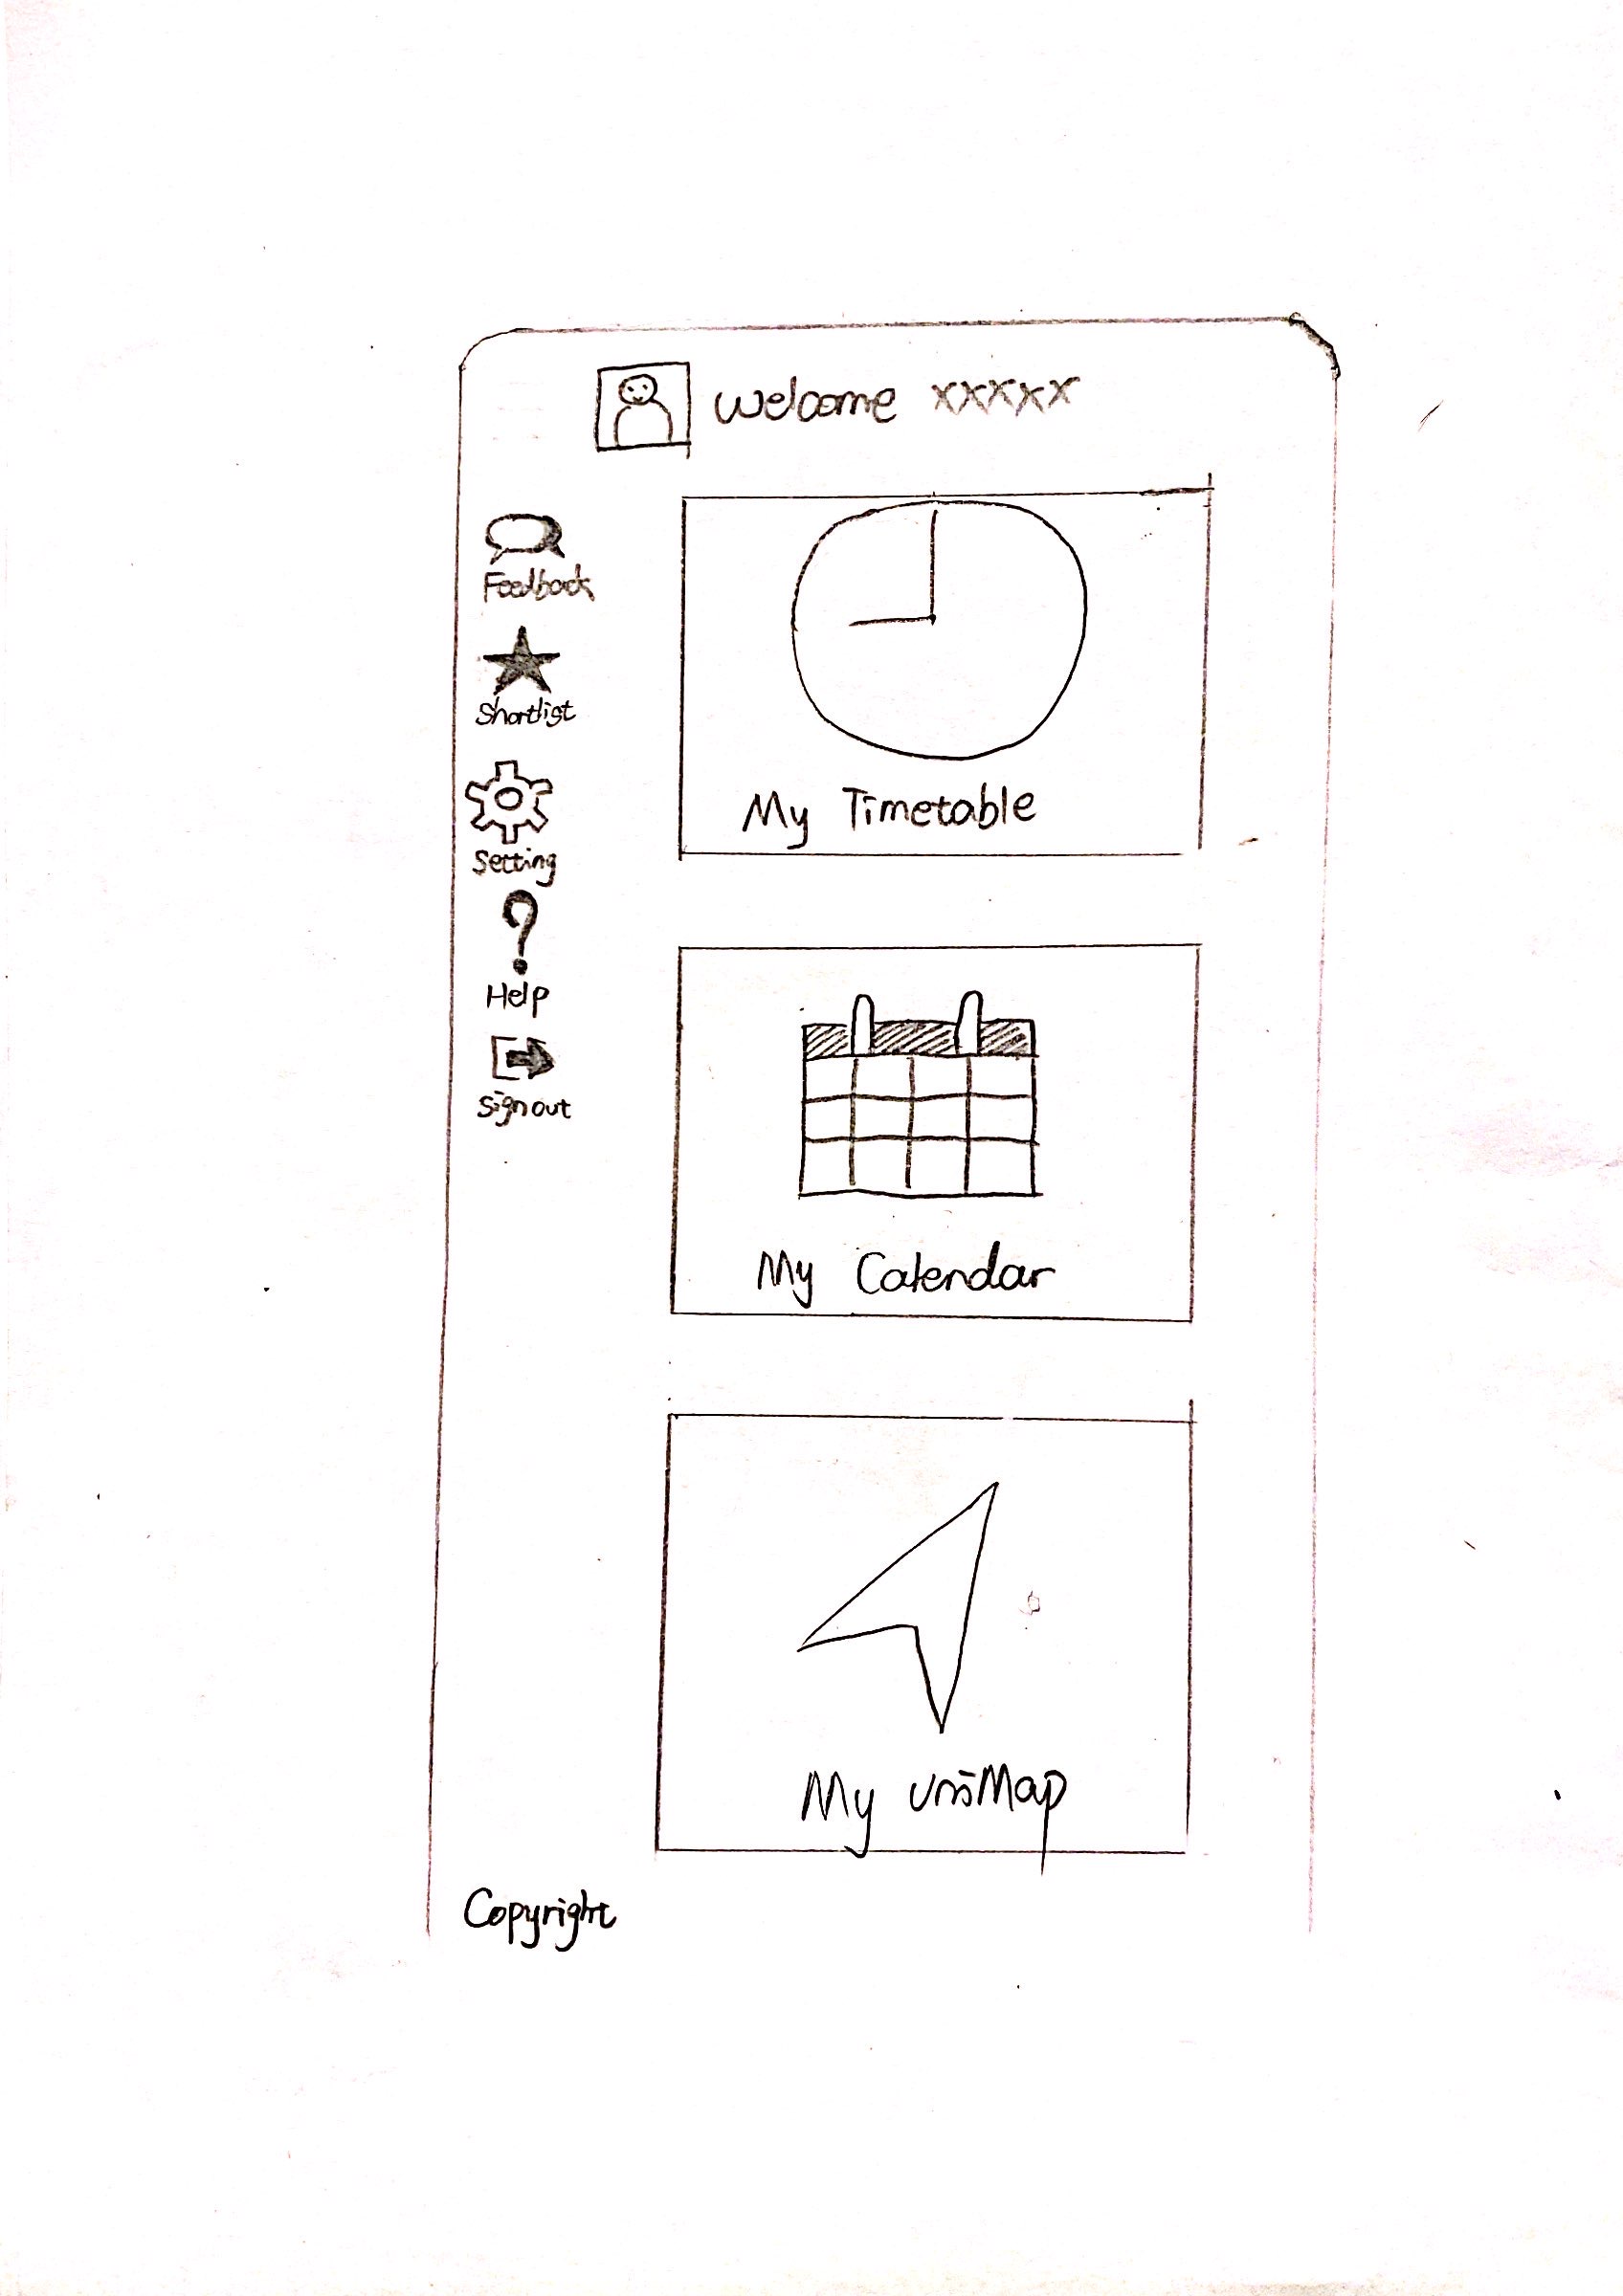 Welcome xxxxx
Feedback
Shortlist
Setting
Help
Sign out
My Timetable
My Calendar
My UniMap
Copyright